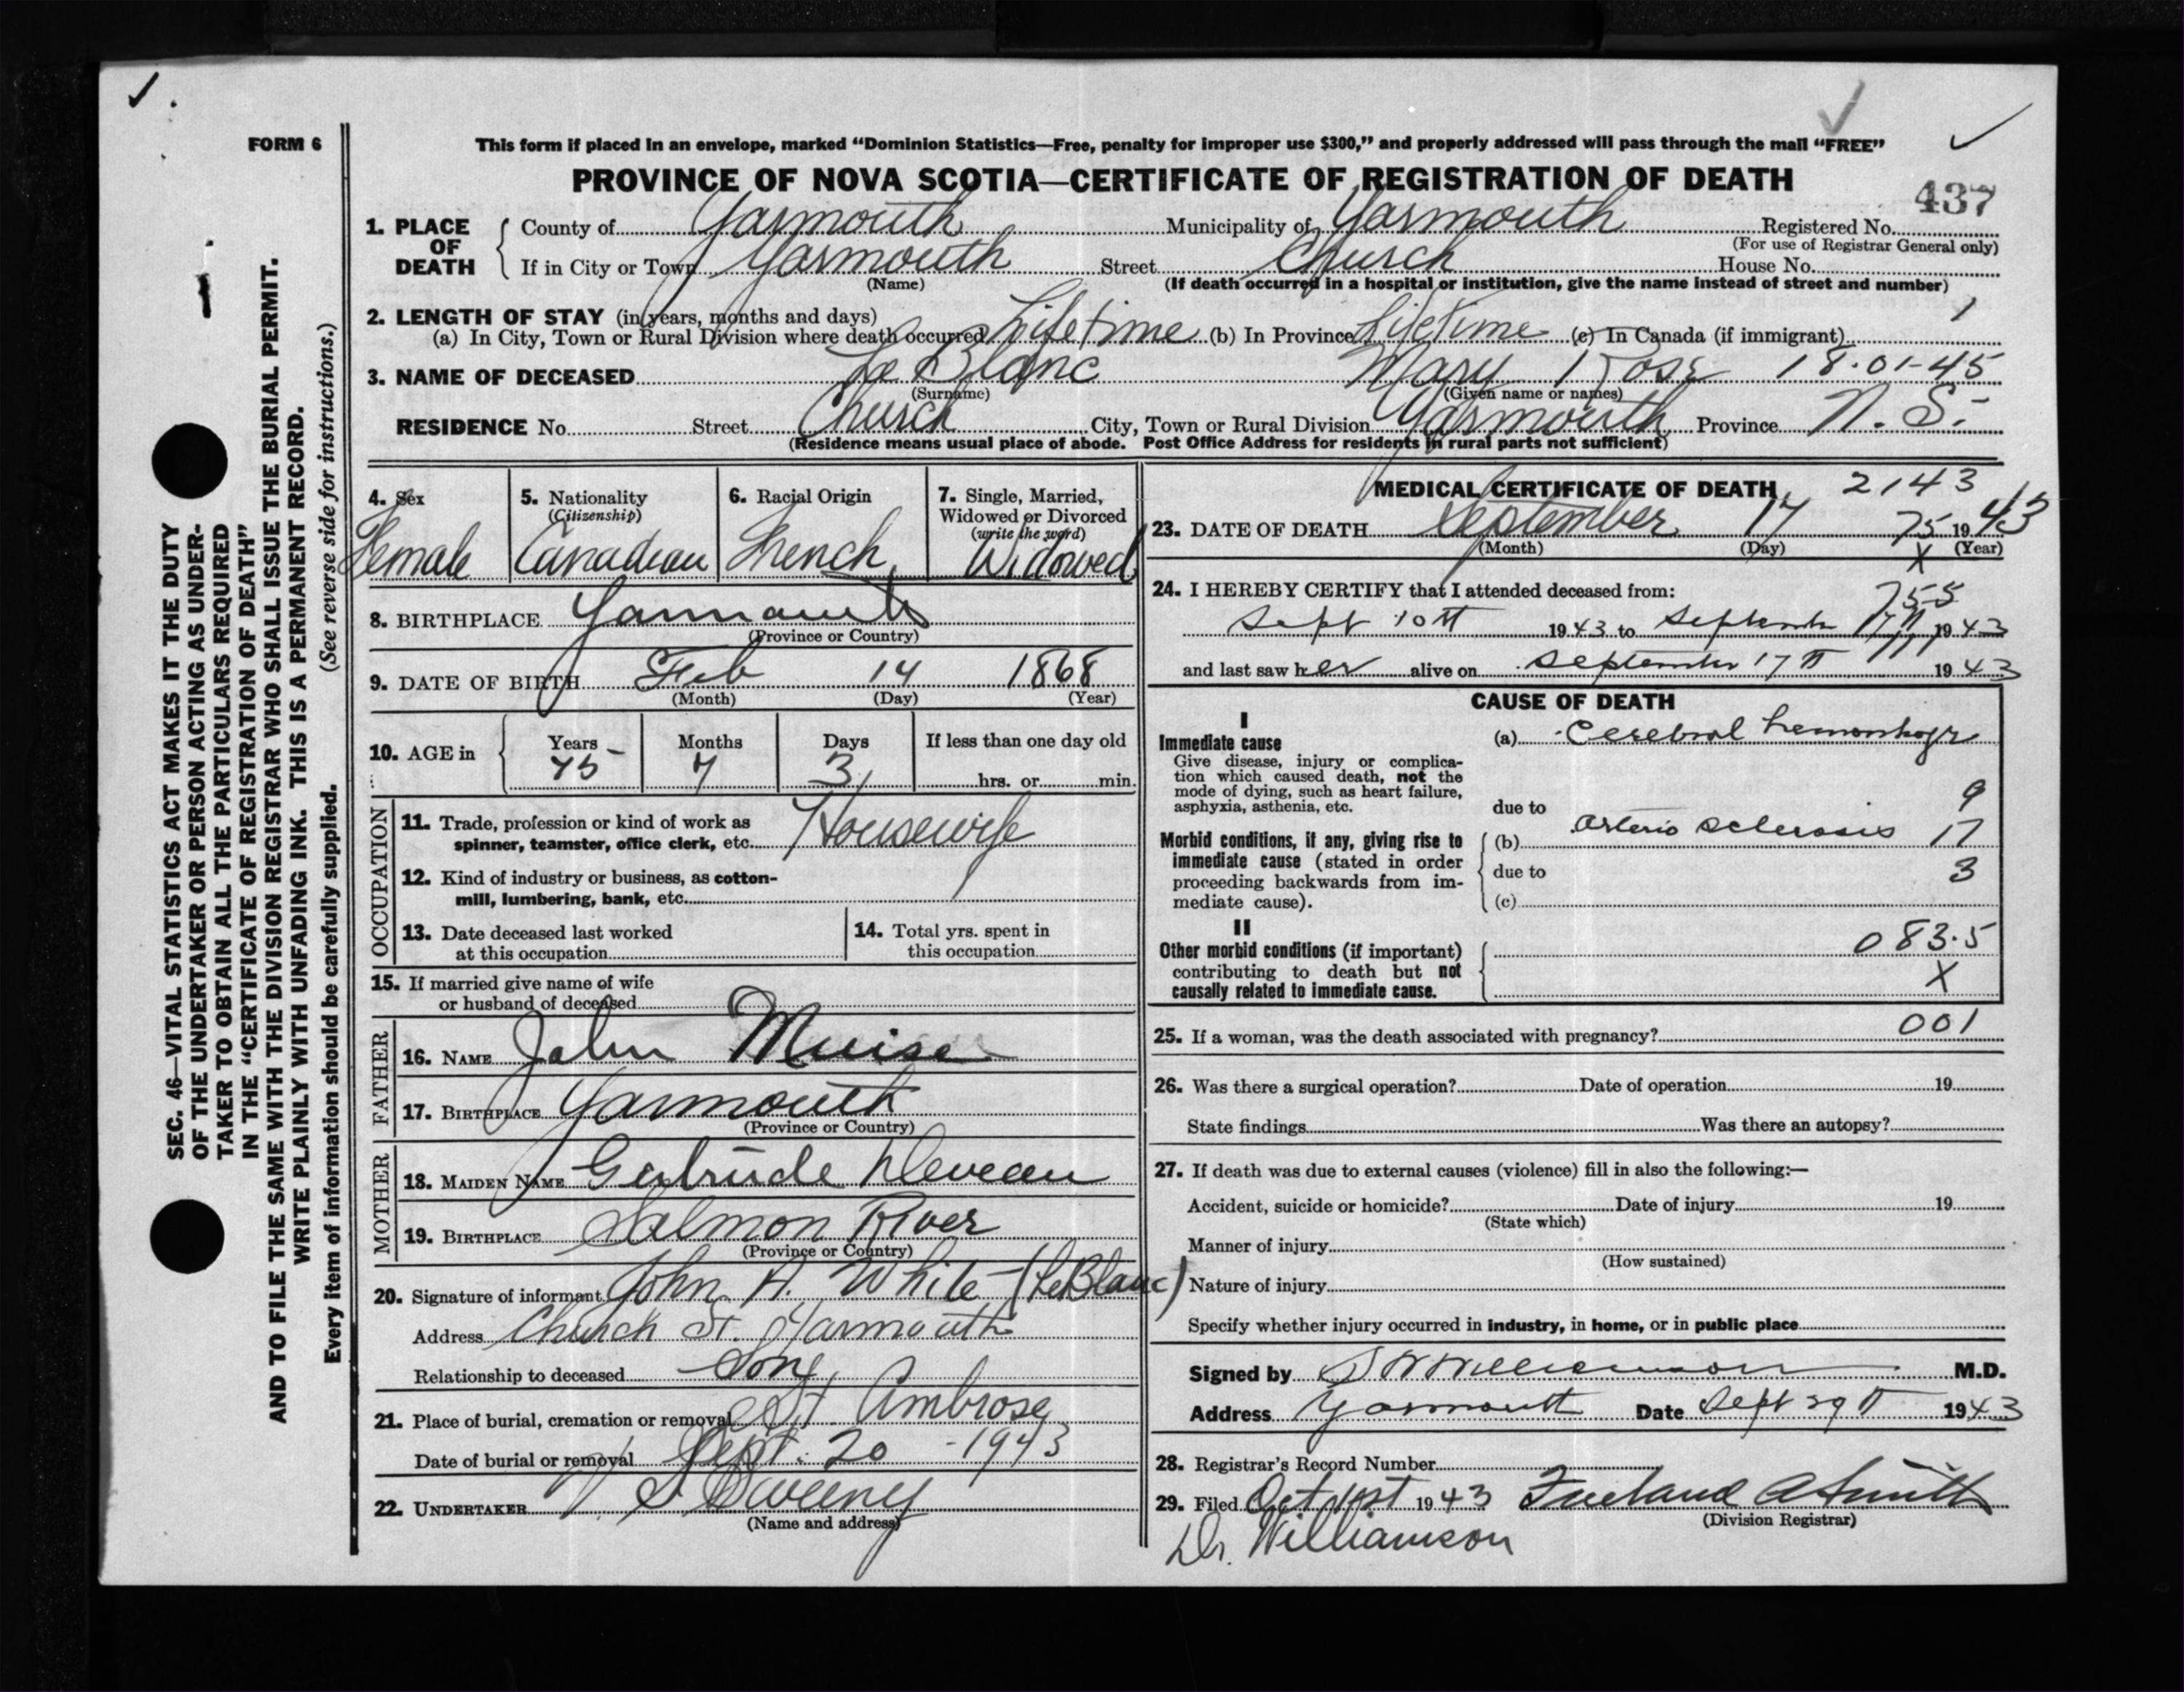 FORM 6
This form if placed in an envelope, marked “Dominion Statistics—Free, penalty for improper use $300,” and properly addressed will pass through the mail “FREE”
PROVINCE OF NOVA SCOTIA—CERTIFICATE OF REGISTRATION OF DEATH
437
1. PLACE OF DEATH
County of Yarmouth Municipality of Yarmouth Registered No.
(For use of Registrar General only)
If in City or Town Yarmouth Street Church House No.
(Name) (If death occurred in a hospital or institution, give the name instead of street and number)
2. LENGTH OF STAY (in years, months and days) 1
(a) In City, Town or Rural Division where death occurred Lifetime (b) In Province Lifetime (c) In Canada (if immigrant)
3. NAME OF DECEASED Le Blanc Mary Rose 18-01-45
(Surname) (Given name or names)
RESIDENCE No. Street Church City, Town or Rural Division Yarmouth Province N. S.
(Residence means usual place of abode. Post Office Address for residents in rural parts not sufficient)
4. Sex
Female
5. Nationality
(Citizenship)
Canadian
6. Racial Origin
French
7. Single, Married,
Widowed or Divorced
(write the word)
Widowed
8. BIRTHPLACE Yarmouth
(Province or Country)
9. DATE OF BIRTH Feb 14 1868
(Month) (Day) (Year)
10. AGE in Years Months Days If less than one day old
75 7 3 hrs. or min.
OCCUPATION
11. Trade, profession or kind of work as
spinner, teamster, office clerk, etc. Housewife
12. Kind of industry or business, as cotton-
mill, lumbering, bank, etc.
13. Date deceased last worked
at this occupation
14. Total yrs. spent in
this occupation
15. If married give name of wife
or husband of deceased
FATHER
16. NAME John Muise
17. BIRTHPLACE Yarmouth
(Province or Country)
MOTHER
18. MAIDEN NAME Gertrude Deveau
19. BIRTHPLACE Salmon River
(Province or Country)
20. Signature of informant John A. White (LeBlanc)
Address Church St. Yarmouth
Relationship to deceased Son
21. Place of burial, cremation or removal St. Ambrose
Date of burial or removal Sept. 20 - 1943
22. UNDERTAKER V. S. Sweeny
(Name and address)
MEDICAL CERTIFICATE OF DEATH 2143
23. DATE OF DEATH September 17 75 1943
(Month) (Day) X (Year)
24. I HEREBY CERTIFY that I attended deceased from: 755
Sept 10th 1943 to September 17th 1943
and last saw her alive on September 17th 1943
CAUSE OF DEATH
I
Immediate cause
Give disease, injury or complica-
tion which caused death, not the
mode of dying, such as heart failure,
asphyxia, asthenia, etc.
(a) Cerebral hemorrhage
9
due to
Morbid conditions, if any, giving rise to
immediate cause (stated in order
proceeding backwards from im-
mediate cause).
(b) arterio sclerosis 17
due to 3
(c)
II
Other morbid conditions (if important)
contributing to death but not
causally related to immediate cause.
083.5
X
25. If a woman, was the death associated with pregnancy? 001
26. Was there a surgical operation? Date of operation 19
State findings Was there an autopsy?
27. If death was due to external causes (violence) fill in also the following:—
Accident, suicide or homicide? Date of injury 19
(State which)
Manner of injury
(How sustained)
Nature of injury
Specify whether injury occurred in industry, in home, or in public place
Signed by Williamson M.D.
Address Yarmouth Date Sept 29th 1943
28. Registrar's Record Number
29. Filed Oct 1st 1943 Freeland A Smith
(Division Registrar)
Dr. Williamson
SEC. 46—VITAL STATISTICS ACT MAKES IT THE DUTY
OF THE UNDERTAKER OR PERSON ACTING AS UNDER-
TAKER TO OBTAIN ALL THE PARTICULARS REQUIRED
IN THE “CERTIFICATE OF REGISTRATION OF DEATH”
AND TO FILE THE SAME WITH THE DIVISION REGISTRAR WHO SHALL ISSUE THE BURIAL PERMIT.
WRITE PLAINLY WITH UNFADING INK. THIS IS A PERMANENT RECORD.
Every item of information should be carefully supplied. (See reverse side for instructions.)